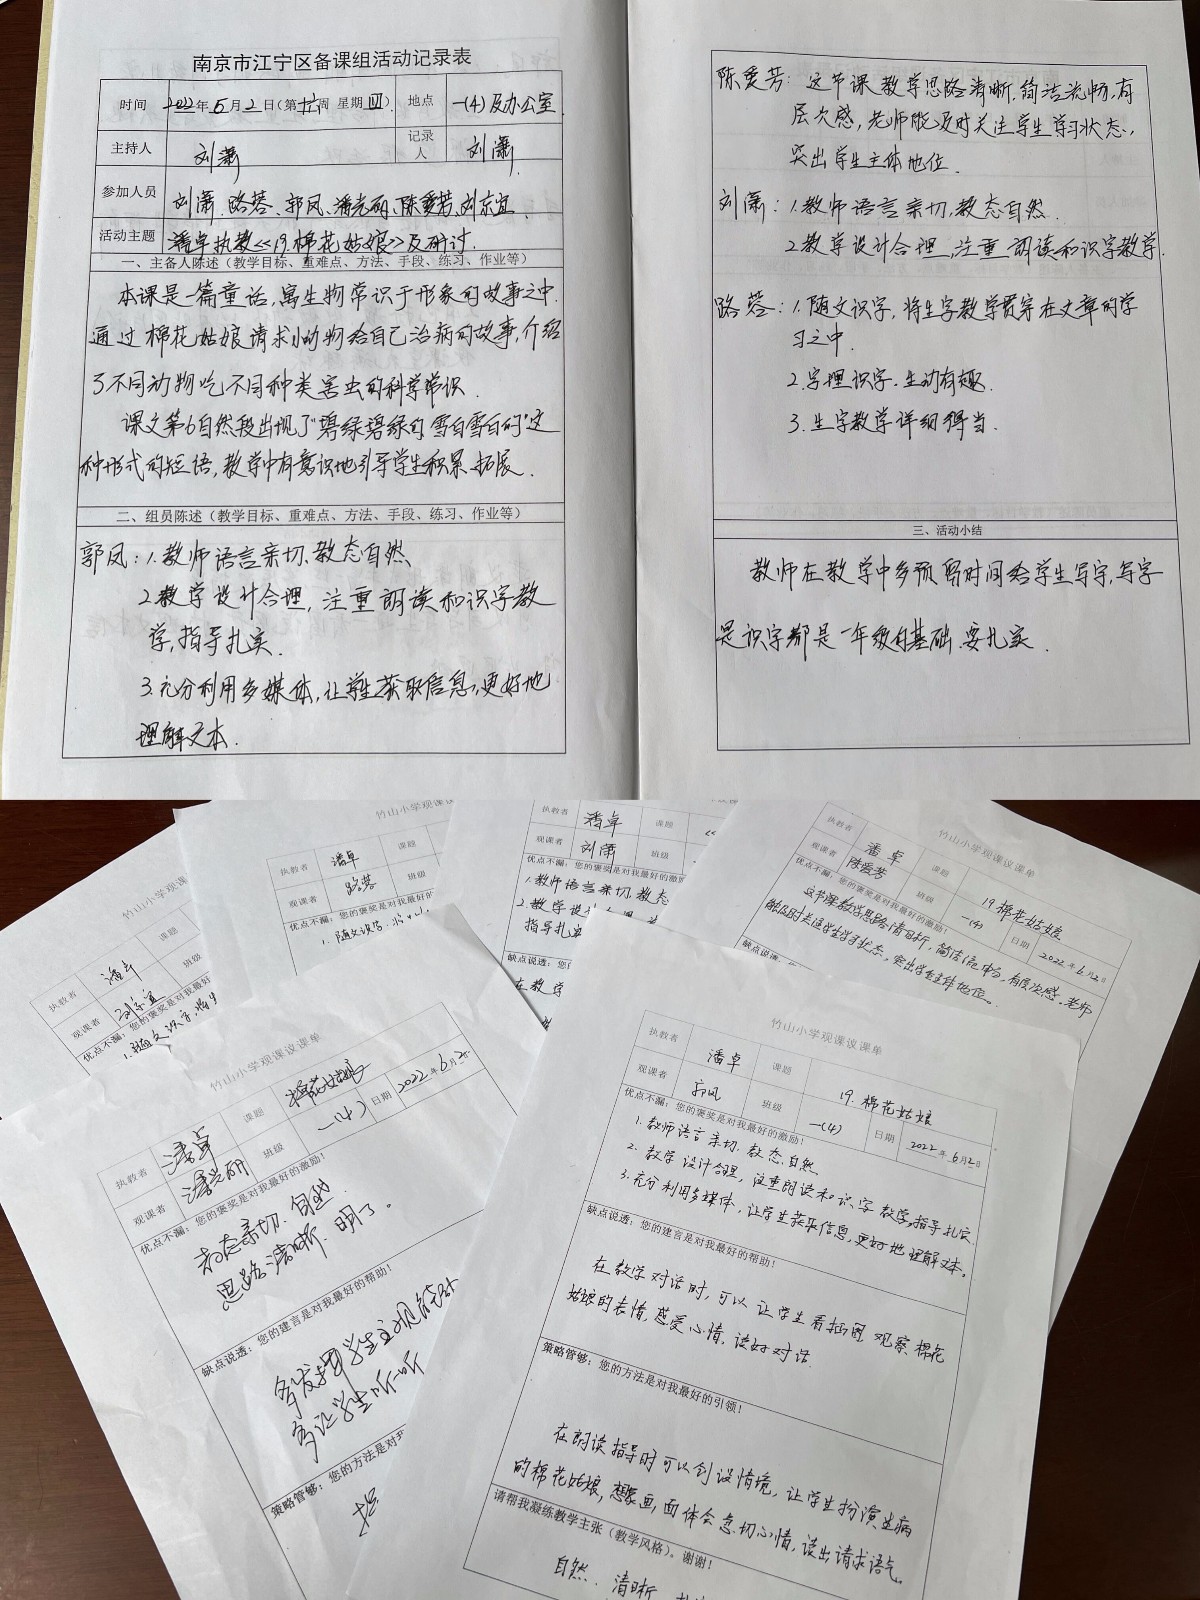 南京市江宁区备课组活动记录表
时间 2022年6月2日(第十六周 星期四) 地点 一(4)及办公室
主持人 刘潇 记录人 刘潇
参加人员 刘潇、路蓉、郭凤、潘光丽、陈爱芳、刘京宜
活动主题 潘卓执教《19.棉花姑娘》及研讨.
一、主备人陈述（教学目标、重难点、方法、手段、练习、作业等）
本课是一篇童话,寓生物常识于形象的故事之中.
通过棉花姑娘请求小动物给自己治病的故事,介绍
了不同动物吃不同种类害虫的科学常识.
课文第6自然段出现了"碧绿碧绿的 雪白雪白的"这
种形式的短语,教学中有意识地引导学生积累、拓展.
二、组员陈述（教学目标、重难点、方法、手段、练习、作业等）
郭凤:1.教师语言亲切、教态自然
2.教学设计合理,注重朗读和识字教
学,指导扎实.
3.充分利用多媒体,让学生获取信息,更好地
理解文本.
陈爱芳:这节课教学思路清晰,简洁流畅,有
层次感,老师能及时关注学生学习状态,
突出学生主体地位.
刘潇:1.教师语言亲切,教态自然.
2.教学设计合理,注重朗读和识字教学.
路蓉:1.随文识字,将生字教学贯穿在文章的学
习之中.
2.字理识字.生动有趣.
3.生字教学详细得当.
三、活动小结
教师在教学中多预留时间给学生写字,写字
是识字都是一年级的基础.要扎实.
竹山小学观课议课单
执教者 潘卓 课题
观课者 刘京宜 班级
优点不漏：您的褒奖是对我最好
1.随文识字,将生
竹山小学观课
执教者 潘卓 课题
观课者 路蓉 班级
优点不漏：您的褒奖是对我最好的
1.随文识字.将
执教者 潘卓 课题
观课者 刘潇 班级
优点不漏：您的褒奖是对我最好的激励
1.教师语言亲切,教态
2.教学设计合理,注
指导扎实
缺点说透：您的
在教学
竹山小学观课议课单
执教者 潘卓 课题 19棉花姑娘
观课者 陈爱芳 班级 一(4) 日期 2022年6月2日
优点不漏：您的褒奖是对我最好的激励！
这节课教学思路清晰,简洁流畅,有层次感,老师
能及时关注学生学习状态,突出学生主体地位。
缺点说透：您的建言是对我最好的帮助！
竹山小学观课议课单
执教者 潘卓 课题 棉花姑娘
观课者 潘光丽 班级 一(4) 日期 2022年6月2日
优点不漏：您的褒奖是对我最好的激励！
教态亲切.自然
思路清晰.明了.
缺点说透：您的建言是对我最好的帮助！
多发挥学生主观能动
多让学生听一听
策略管够：您的方法是对我
竹山小学观课议课单
执教者 潘卓 课题 19.棉花姑娘
观课者 郭凤 班级 一(4) 日期 2022年6月2日
优点不漏：您的褒奖是对我最好的激励！
1.教师语言亲切.教态自然
2.教学设计合理,注重朗读和识字教学,指导扎实.
3.充分利用多媒体,让学生获取信息,更好地理解文本。
缺点说透：您的建言是对我最好的帮助！
在教学对话时,可以让学生看插图,观察棉花
姑娘的表情,感受心情,读好对话.
策略管够：您的方法是对我最好的引领！
在朗读指导时可以创设情境,让学生扮演生病
的棉花姑娘,想象画面体会急切心情,读出请求语气。
请帮我凝练教学主张（教学风格）。谢谢！
自然、清晰、